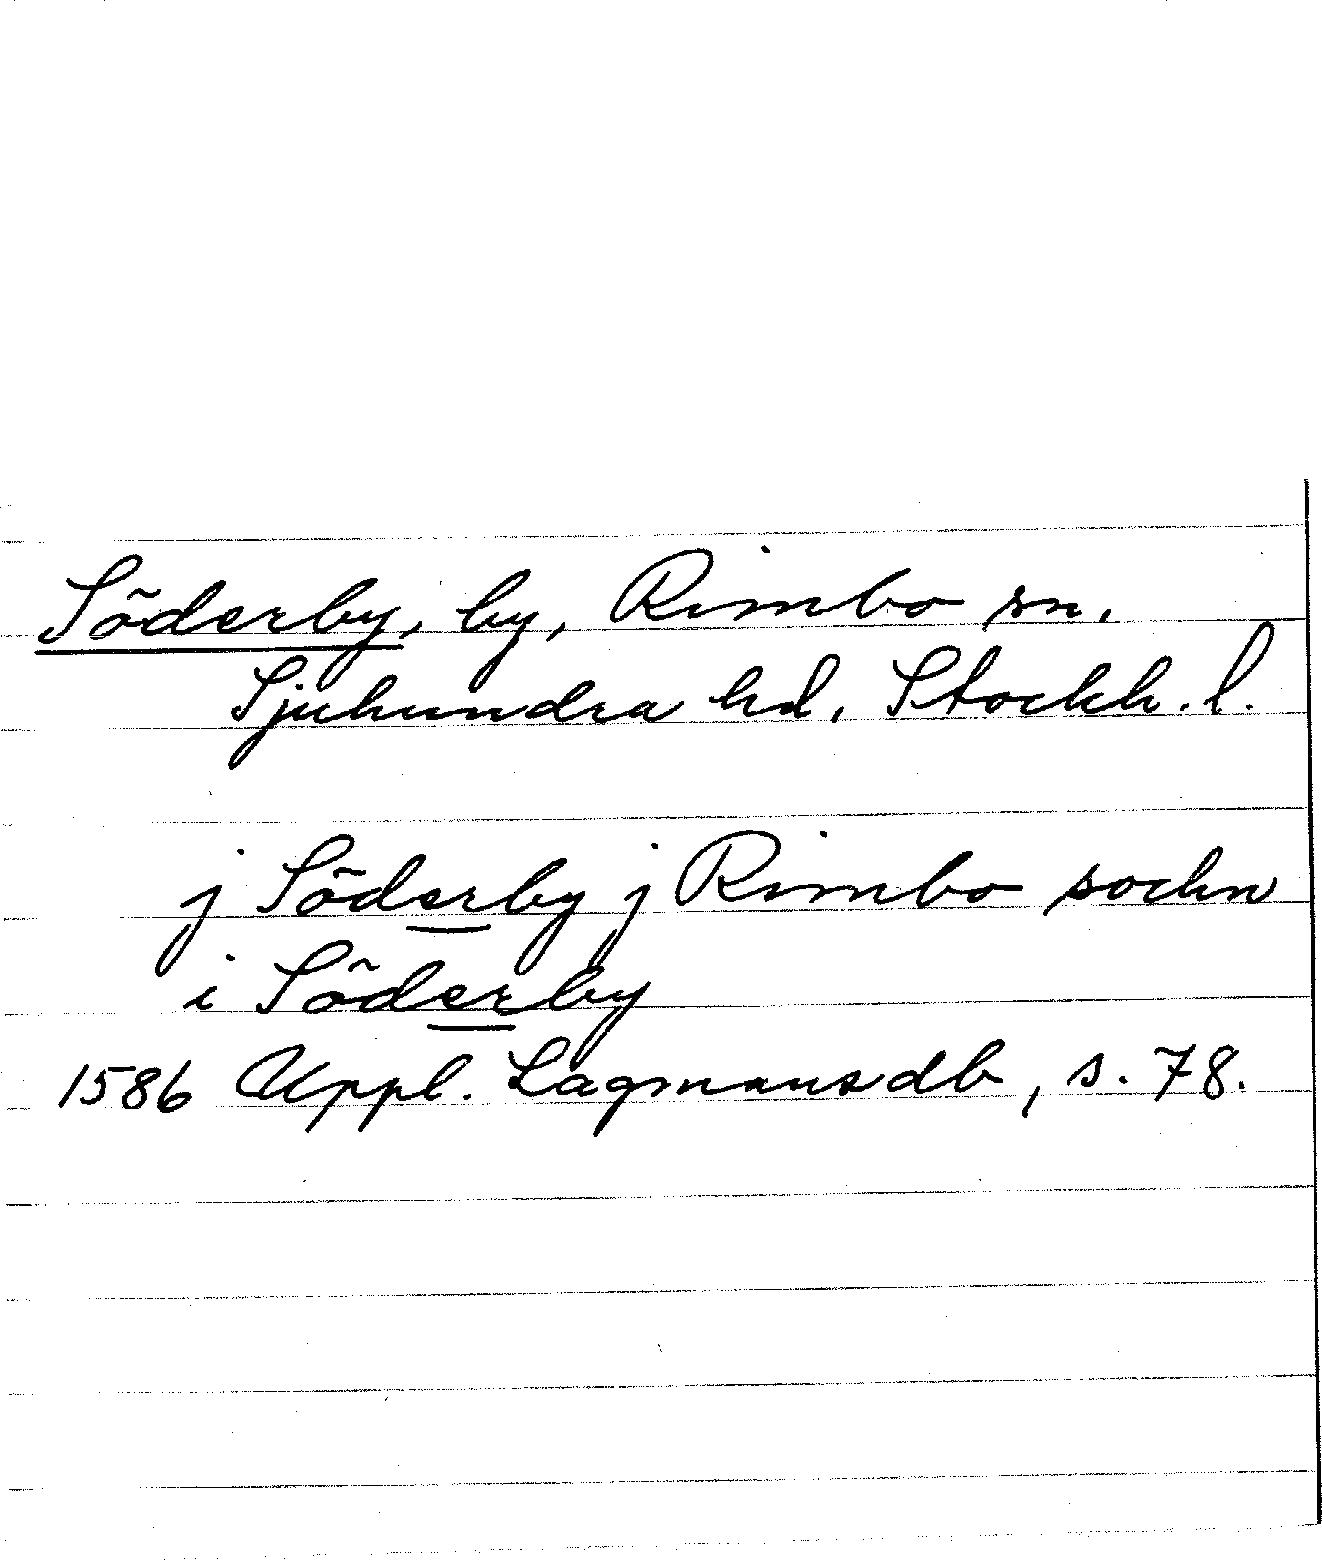 Söderby, by, Rimbo sn.
Sjuhundra hd, Stockh. l.
j Söderby j Rimbo sochn
i Söderby
1586 Uppl. Lagmansdb, s. 78.